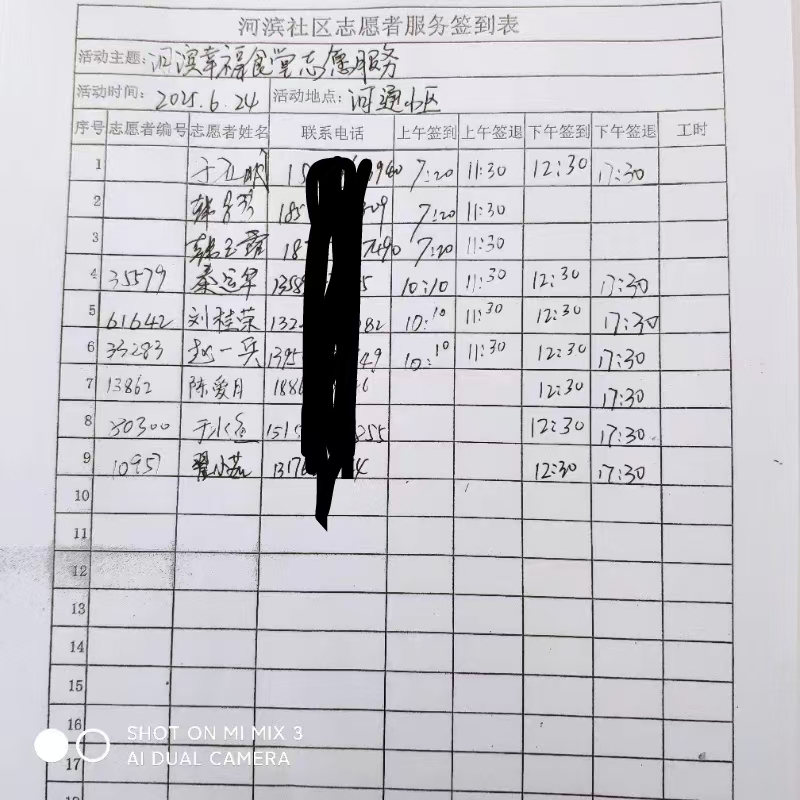 河滨社区志愿者服务签到表
活动主题: 河滨幸福食堂志愿服务
活动时间: 2025.6.24 活动地点: 河通小区
序号 志愿者编号 志愿者姓名 联系电话 上午签到 上午签退 下午签到 下午签退 工时
1 7:20 11:30 12:30 17:30
2 185 09 7:20 11:30
3 韩玉霞 18 7490 7:20 11:30
4 35579 秦运华 1358 5 10:10 11:30 12:30 17:30
5 61642 刘桂荣 132 82 10:10 11:30 12:30 17:30
6 33283 赵一兵 1395 49 10:10 11:30 12:30 17:30
7 13862 陈爱月 188 12:30 17:30
8 30300 151 255 12:30 17:30
9 10957 翟小茹 1317 4 12:30 17:30
10
11
12
13
14
15
16
17
SHOT ON MI MIX 3
AI DUAL CAMERA